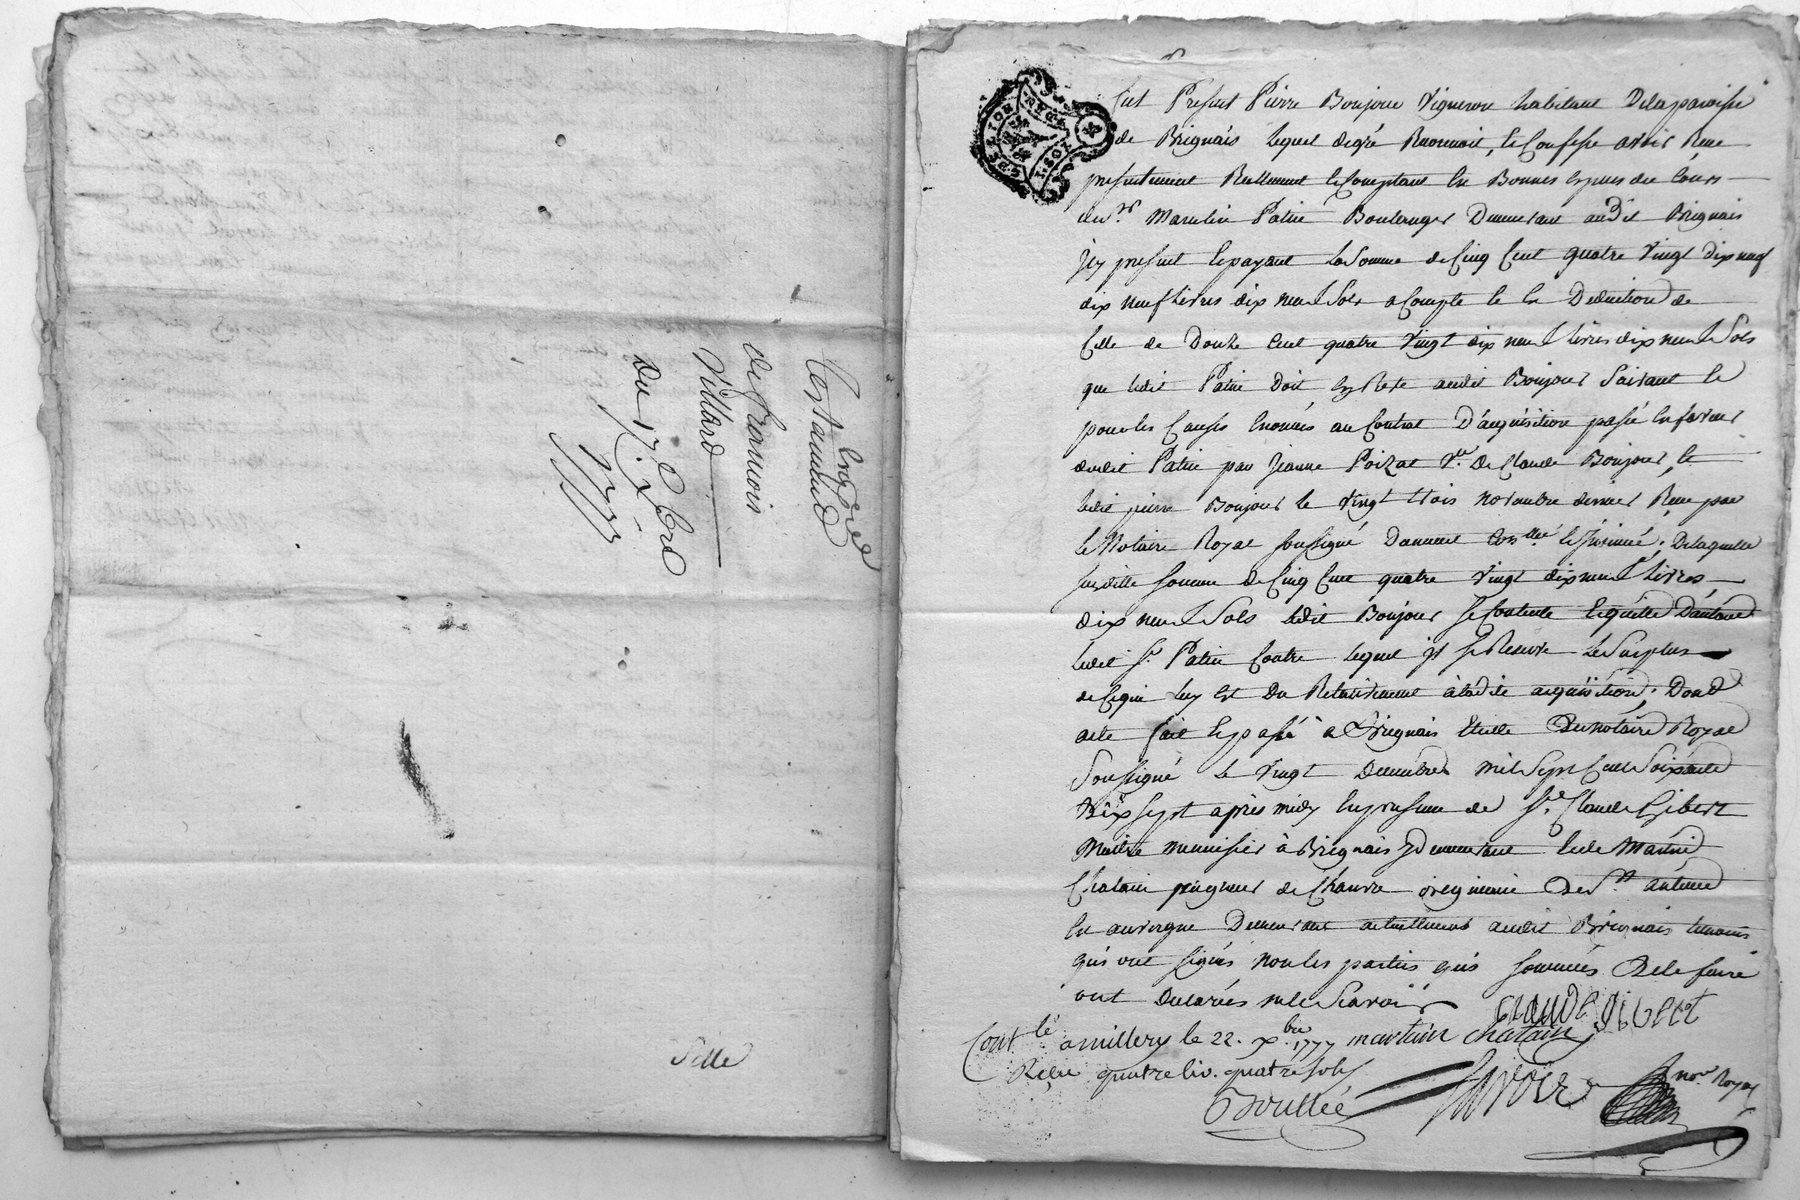 Testament
Enoncé
de francois
Villard
Du 17 8bre
1777
Sille
GEN. DE LION
1. SOL
Fut Present Pierre Boujour Vigneron habitant Delaparoisse
de Brignais lequel degré Reconnoit, et Confesse avoir Receu
presentement Reellement et Comptant En Bonnes especes du Cours
du sr Marcelin Patin Boulanger Demeurant audit Brignais
Icy present et payant la Somme de Cinq Cent quatre Vingt dix neuf
dix neuf Livres dix neuf Sols a Compte et En Deduction de
Celle de Douze Cent quatre Vingt dix neuf livres dix neuf Sols
que ledit Patin doit En Reste audit Boujour Suivant et
pour les Causes Enoncées au Contrat D'acquisition passé En faveur
dudit Patin par Jeanne Poizat Ve. De Claude Boujour, et
ledit pierre Boujour le Vingt trois novembre dernier Receu par
le Notaire Royal soussigné Duement Conllé et Insinué, Delaquelle
susditte somme de Cinq Cent quatre Vingt dix neuf livres
dix neuf Sols ledit Boujour se Contente Et quitte D'autant
ledit Sr. Patin Contre lequel Il se Reserve le Surplus
de Ce qui luy Est Du Relativement à ladite acquisition, Dont
acte fait Et passé à Brignais Etude Du notaire Royal
Soussigné le Vingt Decembre mil Sept Cent Soixante
Dix sept après midy En presence de Sr. Claude Gibert
Maitre menuisier à Brignais y Demeurant Et de Martin
Chatain peigneur de Chanvre originaire De St. antheme
En auvergne Demeurant actuellement audit Brignais temoins
qui ont signés non les parties qui sommées De le faire
ont Declarées ne le Scavoir
CLAUDE GIBERT
Contlé a millery le 22. Xbre 1777 martain chatain
Reçu quatre liv. quatre sols
Boullée
nore Royal